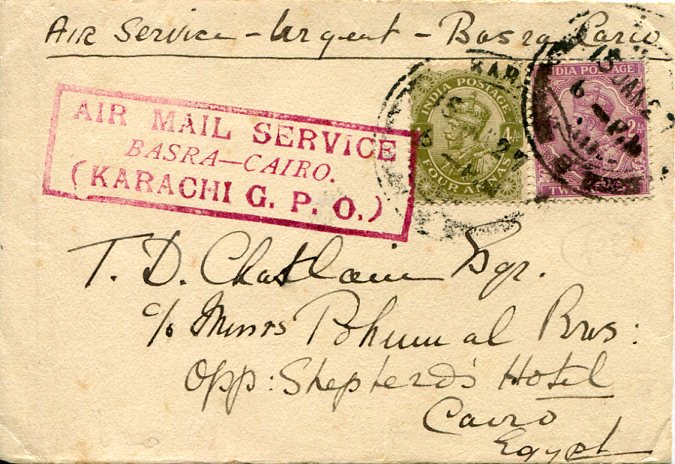 Air Service - Urgent - Basra Cairo
AIR MAIL SERVICE
BASRA—CAIRO.
(KARACHI G. P. O.)
INDIA POSTAGE
4As
FOUR ANNAS
INDIA POSTAGE
2As
KAR
T. D. Chatlani Esqr.
c/o Messrs Pohumal Bros:
Opp: Shepherd's Hotel
Cairo
Egypt